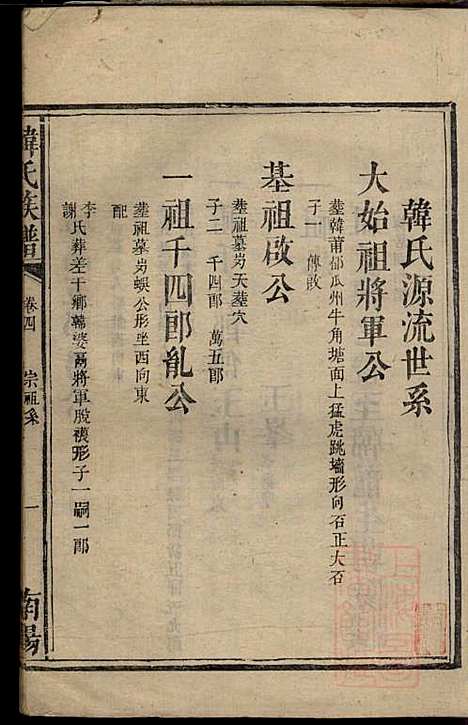 韓氏源流世系
大始祖將軍公
塟韓莆鄉瓜州牛角塘面上猛虎跳墻形向石正大石
子一 傳啟
基祖啟公
塟祖墓岃天塟穴
子二 千四郎 萬五郎
一祖千四郎亂公
塟祖墓岃蜈公形坐西向東
配
李
謝
氏葬差十鄉韓婆 將軍股襪形子一嗣一郎
韓氏族譜
卷四
宗祖系
一
南陽